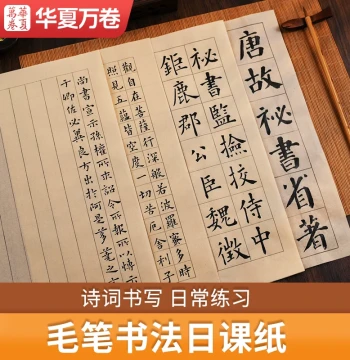 華夏萬卷
华夏万卷
唐故祕書省著
祕書監撿挍侍中
鉅鹿郡公臣魏徵
觀自在菩薩行深般若波羅蜜多時
照見五蘊皆空度一切苦厄舍利子
尚書宣示孫權所求詔令所報所以博示
于卿佐必冀良方出於阿是芻蕘之言
诗词书写 日常练习
毛笔书法日课纸